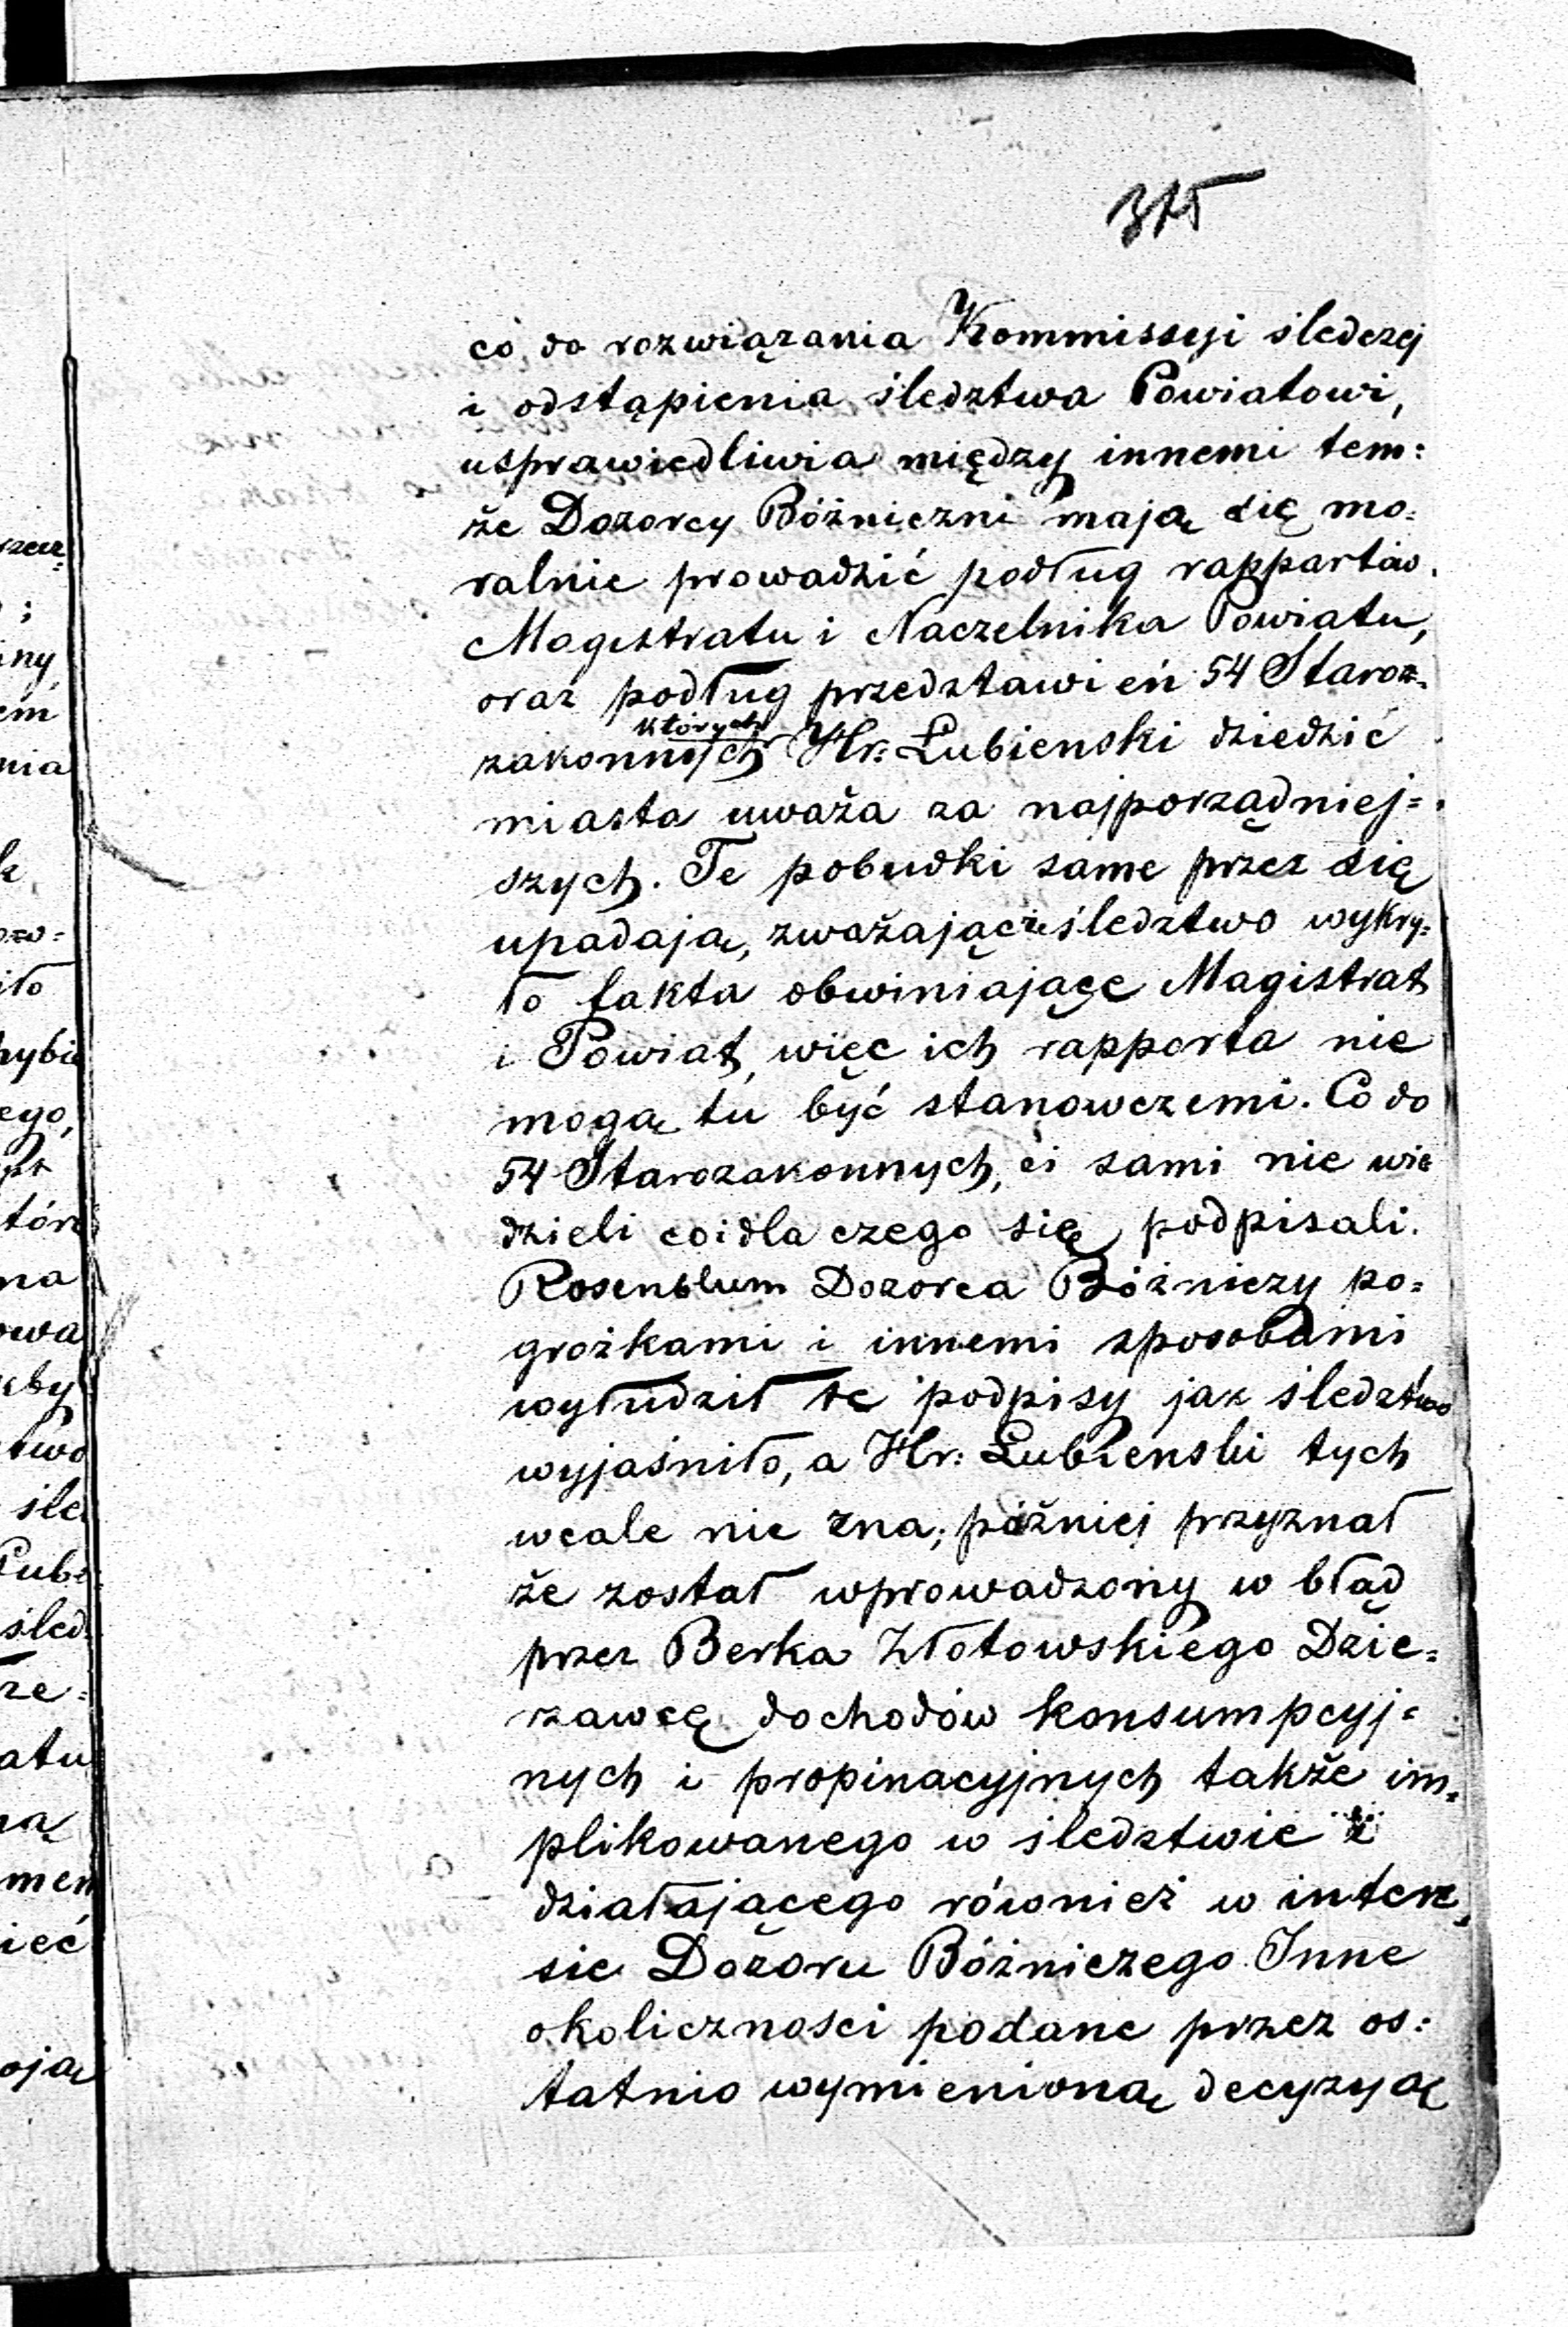 375
co do rozwiązania Kommissyi śledczej
i odstąpienia śledztwa Powiatowi,
usprawiedliwia między innemi tem:
że Dozorcy Bóżniczni mają się mo:
ralnie prowadzić podług rapportów
Magistratu i Naczelnika Powiatu,
oraz podług przedstawień 54 Staroz:
których
zakonnych Hr: Łubienski dziedzić
miasta uważa za najporządniej=
szych. Te pobudki same przez się
upadają, zważając że śledztwo wykry:
ło fakta obwiniające Magistrat
i Powiat, więc ich rapporta nie
mogą tu być stanowczemi. Co do
54 Starozakonnych, ci sami nie wie
dzieli co i dla czego się podpisali.
Rosenblum Dozorca Bóżniczy po=
grożkami i innemi sposobami
wyłudził te podpisy jak śledztwo
wyjaśniło, a Hr: Łubienski tych
wcale nie zna; póżniej przyznał
że został wprowadzony w błąd
przez Berka Złotowskiego Dzie=
rzawcę dochodów konsumpcyj=
nych i propinacyjnych także im=
plikowanego w śledztwie i
działającego również w intere
sie Dozoru Bóżniczego Inne
okoliczności podane przez os:
tatnio wymienioną decyzyą
rzecz
;
ny
em
nia
ozo=
iło
hybi
ego,
tór
na
owa
żby
two
śle
Łubi
śled
rze=
atu
ną
men
ieć
oją